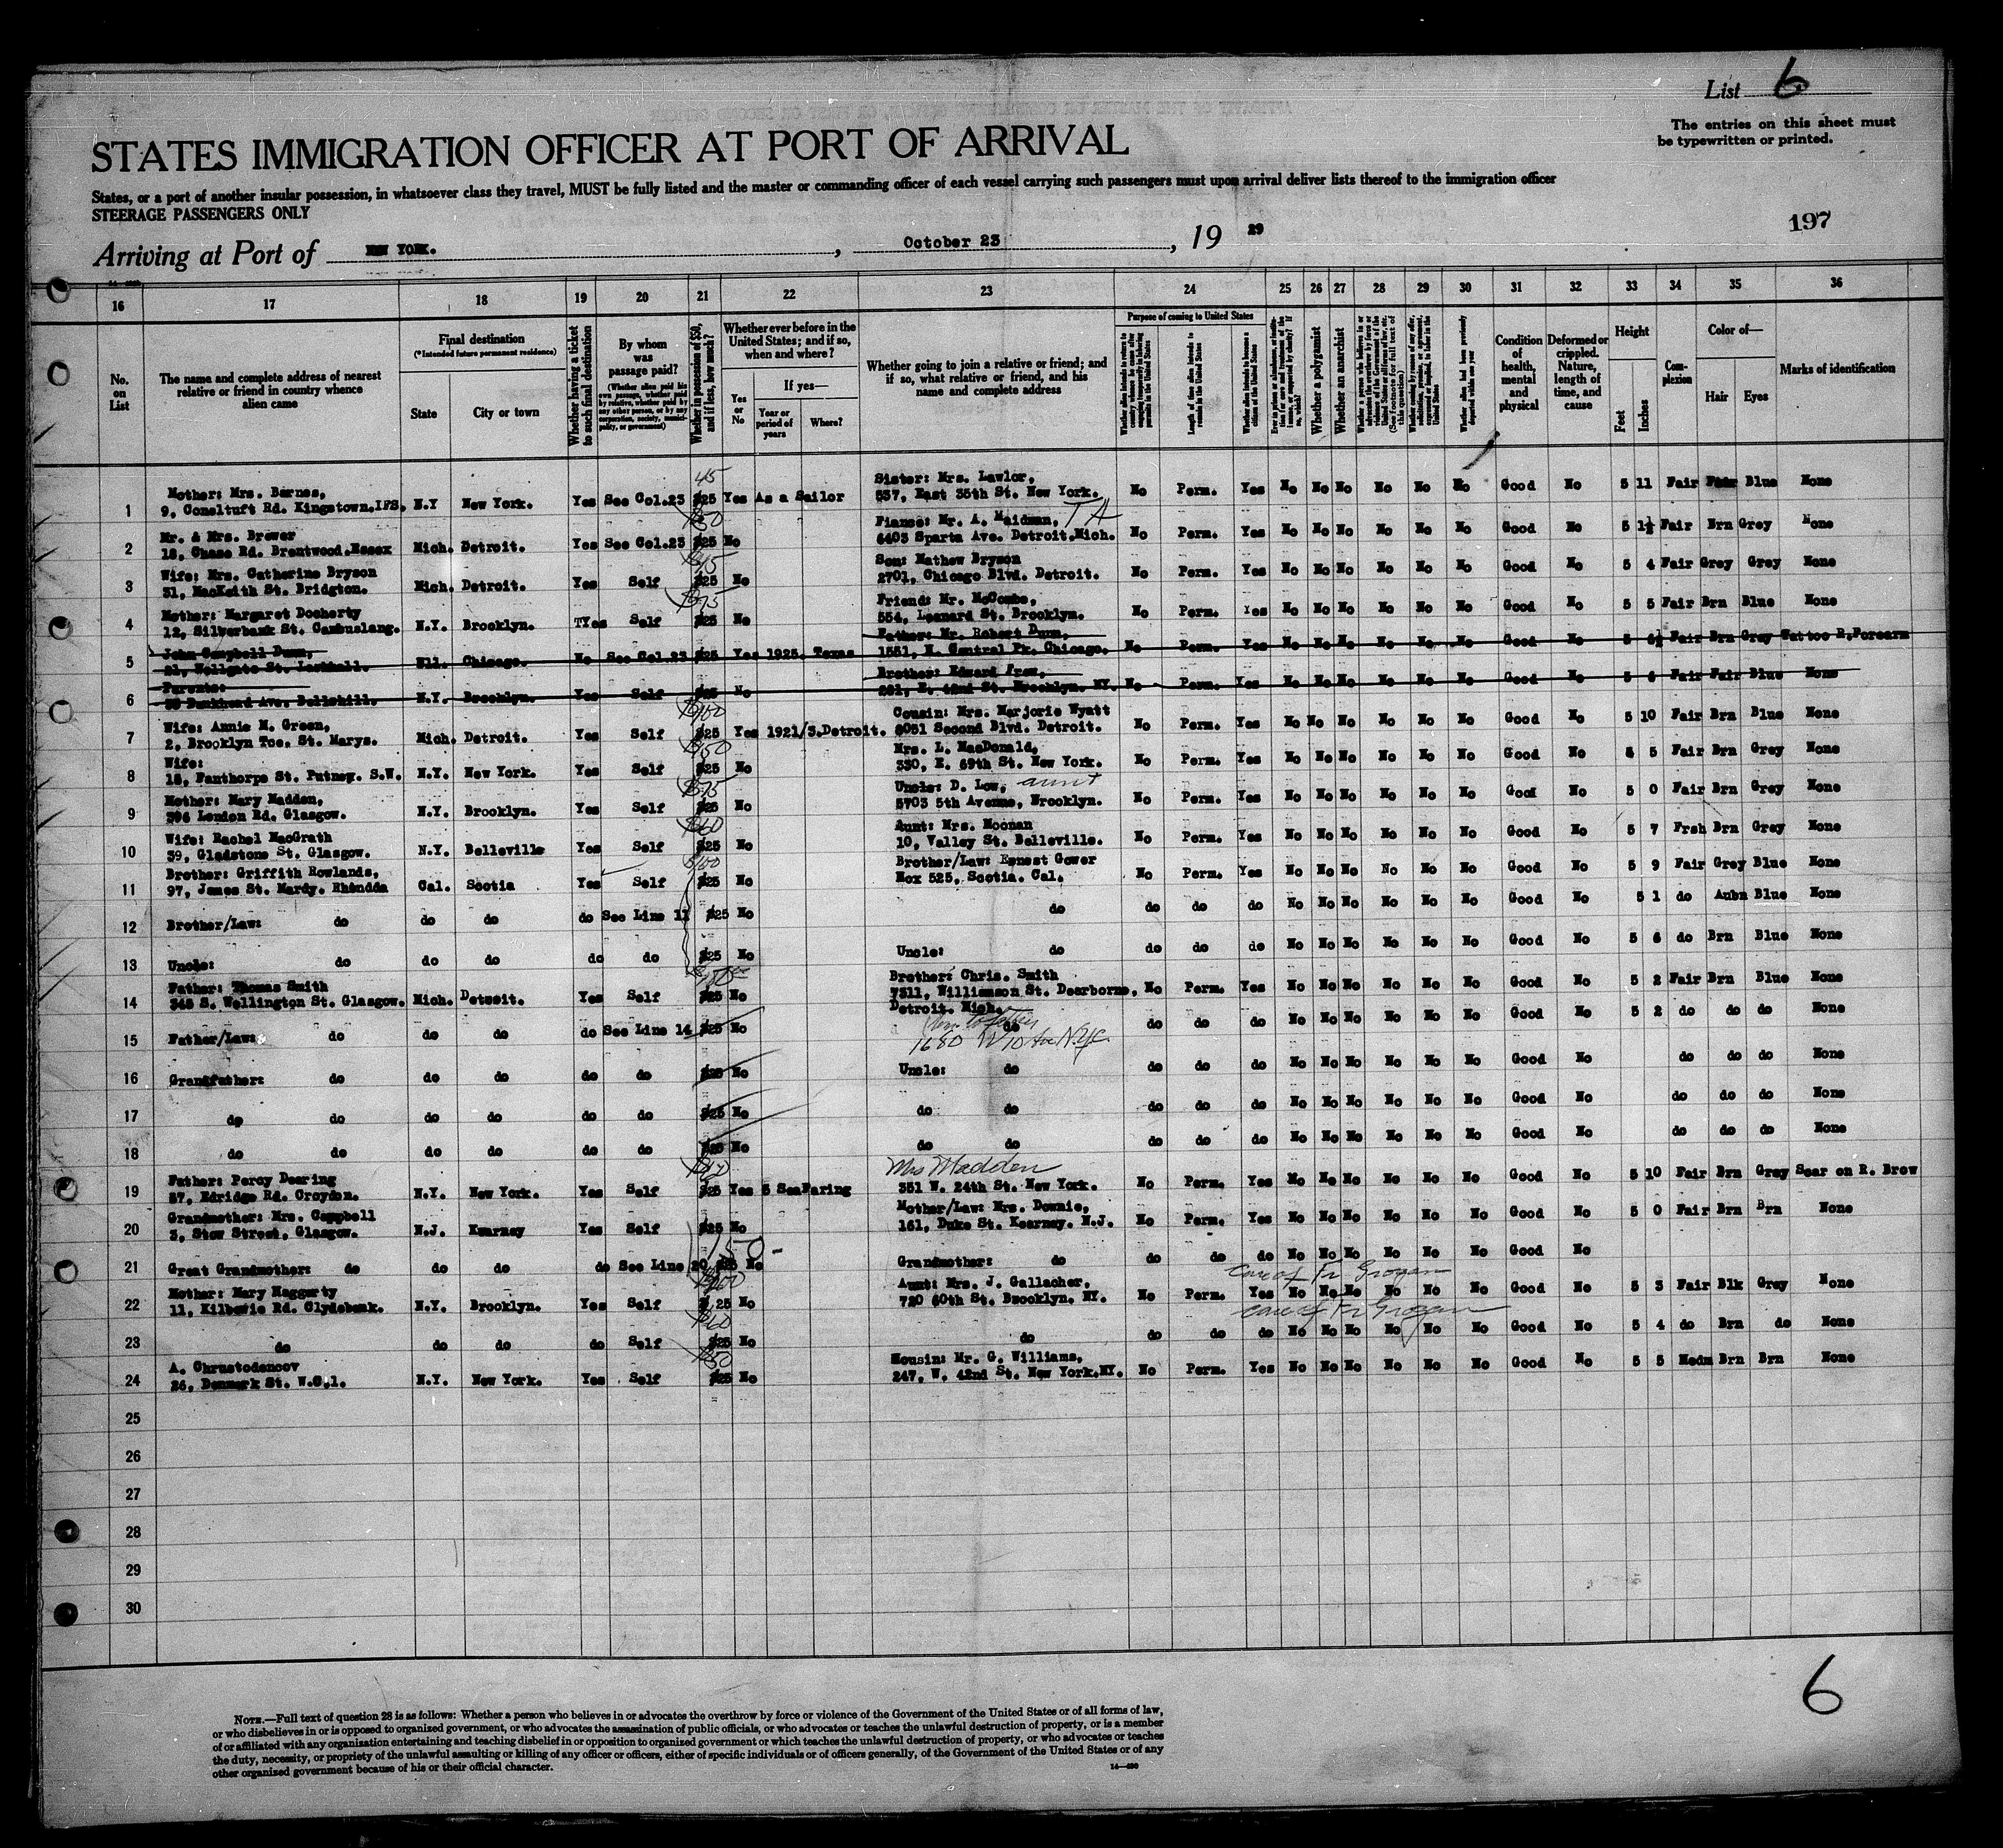 List 6
The entries on this sheet must
be typewritten or printed.
STATES IMMIGRATION OFFICER AT PORT OF ARRIVAL
States, or a port of another insular possession, in whatsoever class they travel, MUST be fully listed and the master or commanding officer of each vessel carrying such passengers must upon arrival deliver lists thereof to the immigration officer
STEERAGE PASSENGERS ONLY
197
Arriving at Port of NEW YORK. , October 23 , 19 29
16 17 18 19 20 21 22 23 24 25 26 27 28 29 30 31 32 33 34 35 36
No. on List
The name and complete address of nearest
relative or friend in country whence
alien came
Final destination
(*Intended future permanent residence)
State City or town
Whether having a ticket
to such final destination
By whom
was
passage paid?
(Whether alien paid his
own passage, whether paid
by relative, whether paid by
any other person, or by any
corporation, society, munici-
pality, or government)
Whether in possession of $50,
and if less, how much?
Whether ever before in the
United States; and if so,
when and where?
Yes or No
If yes—
Year or
period of
years
Where?
Whether going to join a relative or friend; and
if so, what relative or friend, and his
name and complete address
Purpose of coming to United States
Length of time alien intends to
remain in the United States
Whether alien intends to become a
citizen of the United States
Whether a polygamist
Whether an anarchist
Condition
of
health,
mental
and
physical
Deformed or
crippled.
Nature,
length of
time, and
cause
Height
Feet Inches
Com-
plexion
Color of—
Hair Eyes
Marks of identification
45
Mother: Mrs. Barnes, Sister: Mrs. Lawlor,
1 9, Coneltuft Rd. Kingstown.IFS. N.Y New York. Yes See Col.23 $25 Yes As a Sailor 537, East 35th St. New York. No Perm. Yes No No No No No No Good No 5 11 Fair Fair Blue None
Mr. & Mrs. Brewer Fianse: Mr. A. Maidman, T A
2 18, Chase Rd. Brentwood.Essex Mich. Detroit. Yes See Col.23 $25 No 6403 Sparta Ave. Detroit.Mich. No Perm. Yes No No No No No No Good No 5 1½ Fair Brn Grey None
Wife: Mrs. Catherine Bryson Son: Mathew Bryson
3 31, MacKeith St. Bridgton. Mich. Detroit. Yes Self $25 No 2701, Chicago Blvd. Detroit. No Perm. Yes No No No No No No Good No 5 4 Fair Grey Grey None
Mother: Margaret Docherty Friend: Mr. McCombe,
4 12, Silverbank St. Cambuslang. N.Y. Brooklyn. TYes Self $25 No 554, Leonard St. Brooklyn. No Perm. Yes No No No No No No Good No 5 5 Fair Brn Blue None
John Campbell Dunn, Father: Mr. Robert Dunn,
5 21, Wellgate St. Larkhall. Ill. Chicago. No See Col.23 $25 Yes 1925. Texas 1551, N. Central Pk. Chicago. No Perm. Yes No No No No No No Good No 5 6½ Fair Brn Grey Tattoo R.Forearm
Parents: Brother: Edward
6 Bankhead Ave. Bellshill. N.Y. Brooklyn. Yes Self $25 No 281, E. 42nd St. Brooklyn. NY. No Perm. Yes No No No No No No Good No 5 6 Fair Fair Blue None
100
Wife: Annie M. Green, Cousin: Mrs. Marjorie Wyatt
7 2, Brooklyn Tce. St. Marys. Mich. Detroit. Yes Self $25 Yes 1921/3.Detroit. 6051 Second Blvd. Detroit. No Perm. Yes No No No No No No Good No 5 10 Fair Brn Blue None
50
Wife: Mrs. L. MacDonald,
8 18, Fanthorpe St. Putney. S.W. N.Y. New York. Yes Self $25 No 330, E. 69th St. New York. No Perm. Yes No No No No No No Good No 5 5 Fair Brn Grey None
75
Mother: Mary Madden, Uncle: D. Low, aunt
9 396 London Rd. Glasgow. N.Y. Brooklyn. Yes Self $25 No 5703 5th Avenue, Brooklyn. No Perm. Yes No No No No No No Good No 5 0 Fair Brn Grey None
60
Wife: Rachel MacGrath Aunt: Mrs. Noonan
10 39, Gladstone St. Glasgow. N.Y. Belleville Yes Self $25 No 10, Valley St. Belleville. No Perm. Yes No No No No No No Good No 5 7 Frsh Brn Grey None
100
Brother: Griffith Rowlands, Brother/Law: Ernest Gower
11 97, James St. Mardy. Rhondda Cal. Scotia Yes Self $25 No Box 525, Scotia. Cal. No Perm. Yes No No No No No No Good No 5 9 Fair Grey Blue None
12 Brother/Law: do do do do See Line 11 $25 No do do do do No No No No No No Good No 5 1 do Aubn Blue None
13 Uncle: do do do do do $25 No Uncle: do do do do No No No No No No Good No 5 6 do Brn Blue None
Father: Thomas Smith Brother: Chris. Smith
14 348 S. Wellington St. Glasgow. Mich. Detroit. Yes Self $25 No 7311, Williamson St. Dearborne, No Perm. Yes No No No No No No Good No 5 2 Fair Brn Blue None
Detroit. Mich.
15 Father/Law: do do do do See Line 14 $25 No do do do do No No No No No No Good No 5 2 do do do None
1680 W 10 Ave N.Y.C.
16 Grandfather: do do do do do $25 No Uncle: do do do do No No No No No No Good No do do do None
17 do do do do do do $25 No do do do do do No No No No No No Good No do do do None
18 do do do do do do $25 No do do do do do No No No No No No Good No do do do None
Father: Percy Dearing Mrs Madden
19 57, Edridge Rd. Croydon. N.Y. New York. Yes Self $25 Yes 5 SeaFaring 351 W. 24th St. New York. No Perm. Yes No No No No No No Good No 5 10 Fair Brn Grey Scar on R. Brow
Grandmother: Mrs. Campbell Mother/Law: Mrs. Downie,
20 3, Stow Street, Glasgow. N.J. Kearney Yes Self $25 No 161, Duke St. Kearney. N.J. No Perm. Yes No No No No No No Good No 5 0 Fair Brn Brn None
150-
21 Great Grandmother: do do do do See Line 20 $25 No Grandmother: do do do do No No No No No No Good No
care of Fr Grogan
100
Mother: Mary Haggerty Aunt: Mrs. J. Gallacher,
22 11, Kilbowie Rd. Clydebank. N.Y. Brooklyn. Yes Self $25 No 720 60th St. Brooklyn. NY. No Perm. Yes No No No No No No Good No 5 3 Fair Blk Grey None
care of Fr Grogan
60
23 do do do do Self $25 No do do do do No No No No No No Good No 5 4 do Brn do None
50
A. Chrustodoncov Cousin: Mr. G. Williams,
24 26, Denmark St. W.C.1. N.Y. New York. Yes Self $25 No 247, W. 42nd St. New York.NY. No Perm. Yes No No No No No No Good No 5 5 Medm Brn Brn None
25
26
27
28
29
30
6
NOTE.—Full text of question 28 is as follows: Whether a person who believes in or advocates the overthrow by force or violence of the Government of the United States or of all forms of law,
or who disbelieves in or is opposed to organized government, or who advocates the assassination of public officials, or who advocates or teaches the unlawful destruction of property, or is a member
of or affiliated with any organization entertaining and teaching disbelief in or opposition to organized government or which teaches the unlawful destruction of property, or who advocates or teaches
the duty, necessity, or propriety of the unlawful assaulting or killing of any officer or officers, either of specific individuals or of officers generally, of the Government of the United States or of any
other organized government because of his or their official character.
14—490